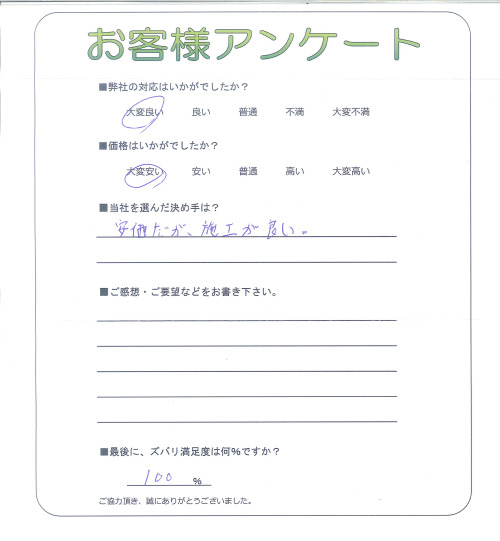 お客様アンケート
■弊社の対応はいかがでしたか？
大変良い 良い 普通 不満 大変不満
■価格はいかがでしたか？
大変安い 安い 普通 高い 大変高い
■当社を選んだ決め手は？
安価だが、施工が良い。
■ご感想・ご要望などをお書き下さい。
■最後に、ズバリ満足度は何%ですか？
100 %
ご協力頂き、誠にありがとうございました。